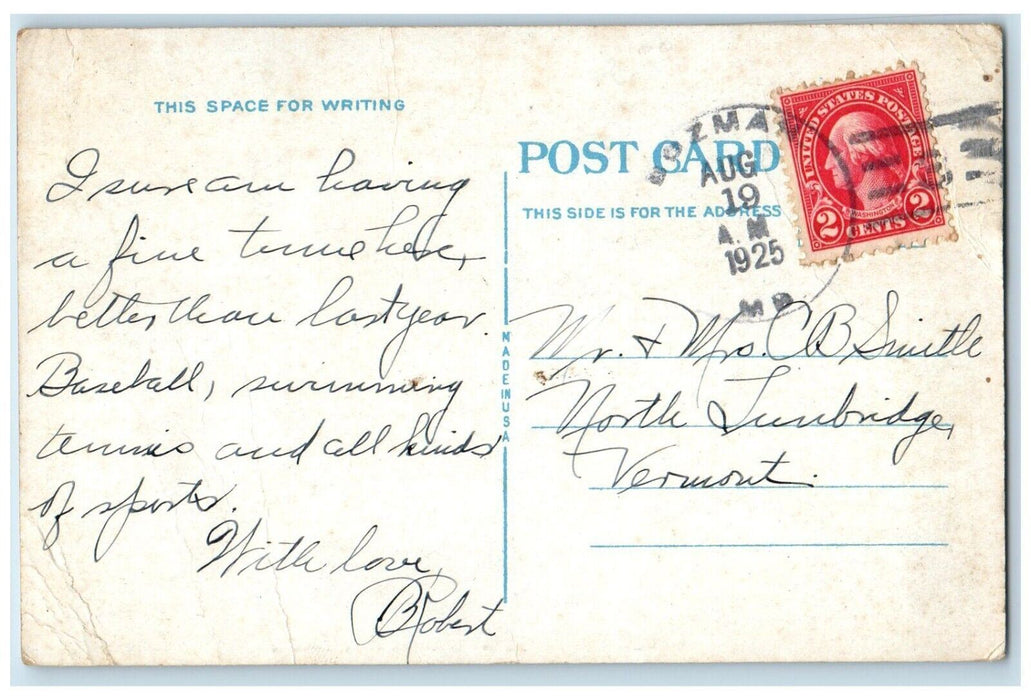 THIS SPACE FOR WRITING
I sure am having
a fine time here,
better than last year.
Baseball, swimming
tennis and all kinds
of sports.
With love,
Robert
MADE IN USA
POST CARD
THIS SIDE IS FOR THE ADDRESS
AUG
19
A.M
1925
MD
UNITED STATES POSTAGE
WASHINGTON
2 CENTS 2
Mr. & Mrs. C B Smith
North Tunbridge,
Vermont.